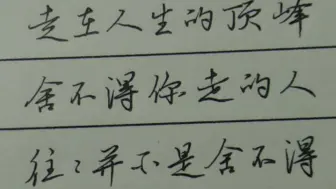 走在人生的顶峰
舍不得你走的人
往往并不是舍不得